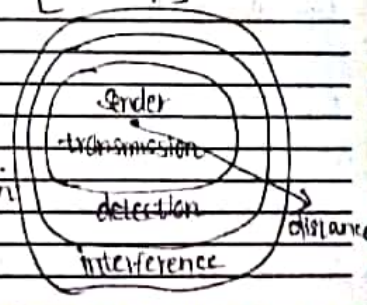 sender
transmission
detection
distance
interference